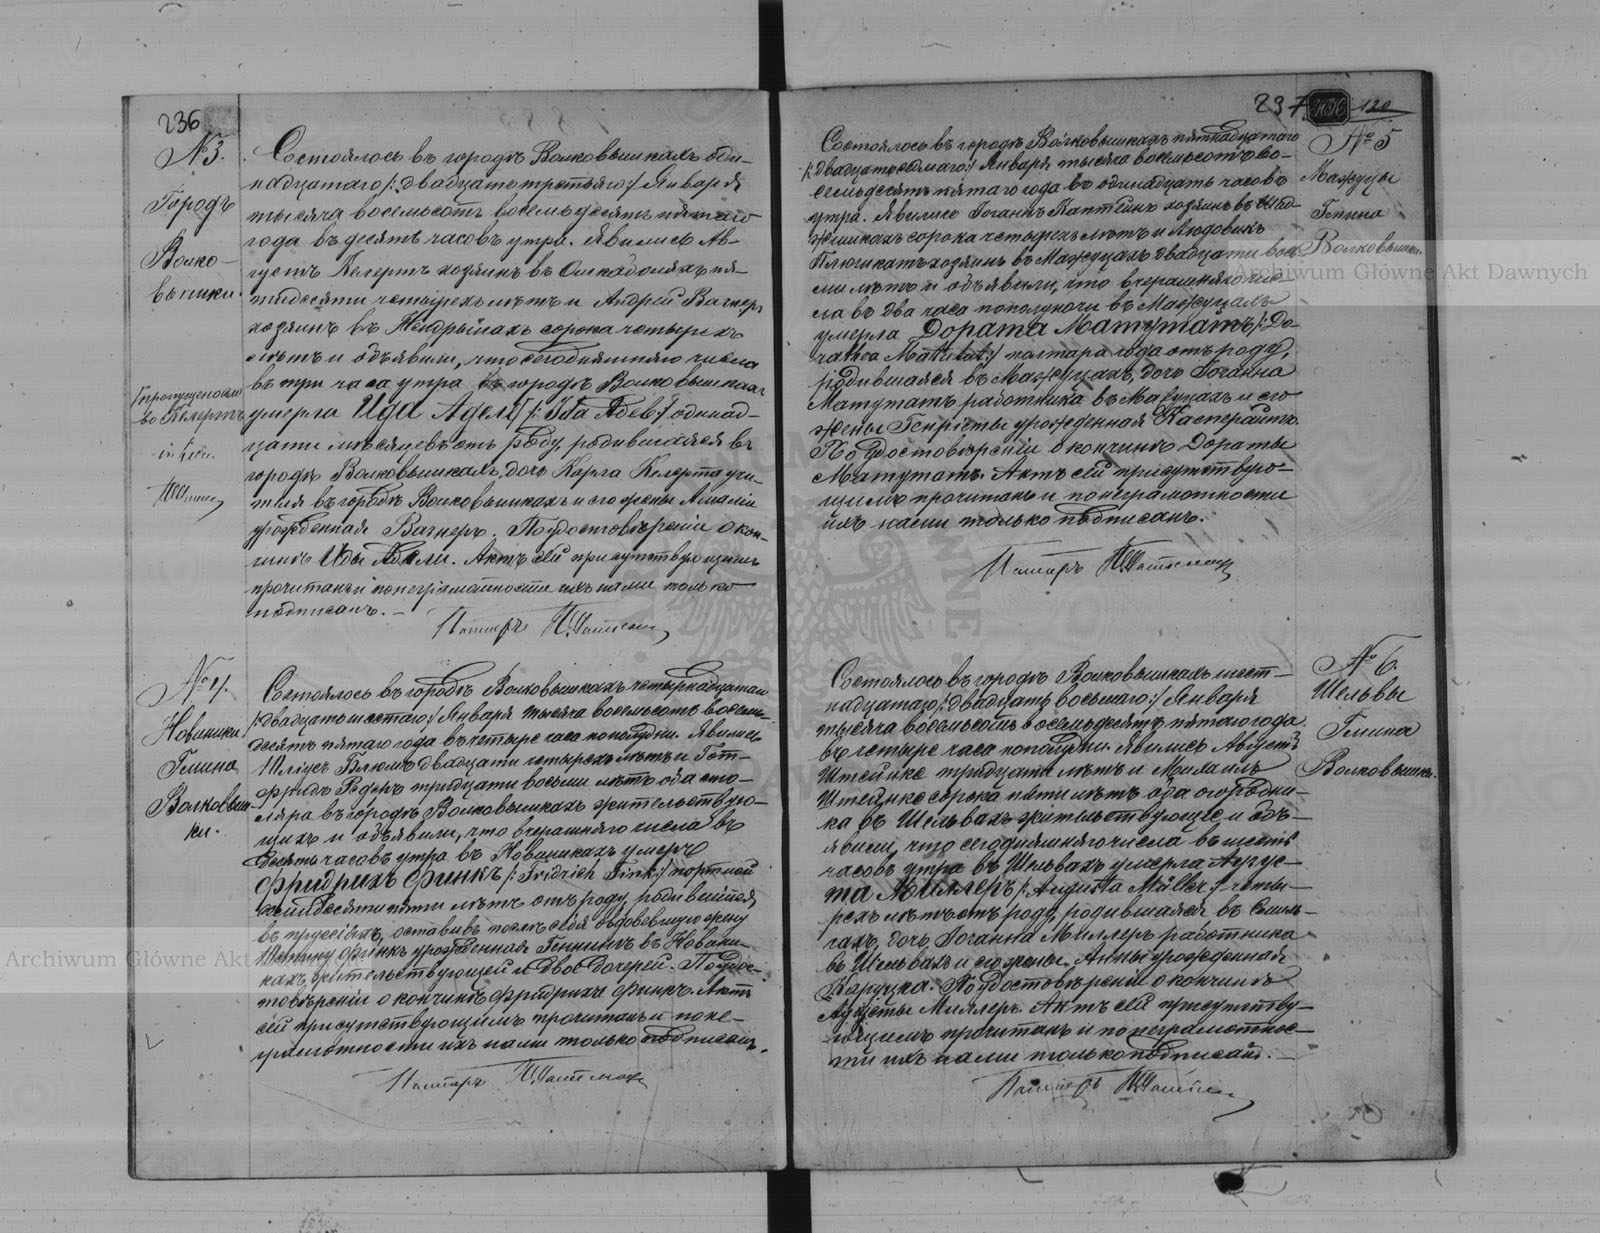 236
№ 3.
Городъ
Волко-
вышки.
Состоялось въ городѣ Волковышкахъ оди-
надцатаго /:двадцать третьяго:/ Января
тысяча восемьсотъ восемьдесятъ пятаго
года въ десять часовъ утра. Явились Ав-
густъ Келертъ хозяинъ въ Ошкаболяхъ пя-
тидесяти четырехъ лѣтъ и Андрей Вагнеръ
хозяинъ въ сорока четырехъ
лѣтъ и объявили, что сегодняшняго числа
въ три часа утра въ городѣ Волковышкахъ
умерла Ида Адель /:Ida Adel:/ одинад-
цати мѣсяцевъ отъ роду, родившаяся въ
городѣ Волковышкахъ, дочь Карла Келерта учи-
теля въ городѣ Волковышкахъ и его жены Амаліи
урожденная Вагнеръ. По удостовѣреніи о кон-
чинѣ Иды Адели. Актъ сей присутствующимъ
прочитанъ и по неграмотности ихъ нами только
подписанъ. —
Пасторъ
пропущено сло-
во Келертъ
№ 4.
Новиники
Гмина
Волковыш-
ки.
Состоялось въ городѣ Волковышкахъ четырнадцатаго
/:двадцать шестаго:/ Января тысяча восемьсотъ восемь-
десятъ пятаго года въ четыре часа пополудни. Явились
Юліусъ Блюмъ двадцати четырехъ лѣтъ и Гот-
фридъ Редеръ тридцати восьми лѣтъ оба сто-
ляра въ городѣ Волковышкахъ жительствую-
щихъ и объявили, что вчерашняго числа въ
десять часовъ утра въ Новиникахъ умеръ
Фридрихъ Финкъ /:Fridrich Fink:/ портной
семидесяти пяти лѣтъ отъ роду, родившійся
въ Пруссіяхъ, оставивъ послѣ себя овдовевшую жену
Финкъ урожденная Геннингъ въ Новини-
кахъ жительствующей и двое дочерей. По удос-
товѣреніи о кончинѣ Фридриха Финкъ. Актъ
сей присутствующимъ прочитанъ и по не-
грамотности ихъ нами только подписанъ.
Пасторъ
237
120
№ 5
Мажуцы
Гмина
Волковышки
Состоялось въ городѣ Волковышкахъ пятнадцатаго
/:двадцать седьмаго:/ Января тысяча восемьсотъ во-
семьдесятъ пятаго года въ одинадцать часовъ
утра. Явились Іоганъ хозяинъ въ
сорока четырехъ лѣтъ и Людовикъ
хозяинъ въ Мажуцахъ двадцати вось-
ми лѣтъ и объявили, что вчерашняго чис-
ла въ два часа пополуночи въ Мажуцахъ
умерла Дората Матутатъ /:Do-
rathea Matutat:/ полтара года отъ роду,
родившаяся въ Мажуцахъ, дочь Іоганна
Матутатъ работника въ Мажуцахъ и его
жены Генріеты урожденная Касперайтъ.
По удостовѣреніи о кончинѣ Дораты
Матутатъ. Актъ сей присутствую-
щимъ прочитанъ и по неграмотности
ихъ нами только подписанъ.
Пасторъ
№ 6.
Шельвы
Гмина
Волковышки.
Состоялось въ городѣ Волковышкахъ шест-
надцатаго /:двадцать восьмаго:/ Января
тысяча восемьсотъ восемьдесятъ пятаго года
въ четыре часа пополудни. Явились Августъ
Штейнке тридцати лѣтъ и Михаилъ
Штейнке сорока пяти лѣтъ оба огородни-
ка въ Шельвахъ жительствующіе и объ-
явили, что сегодняшняго числа въ шесть
часовъ утра въ Шельвахъ умерла Авгус-
та Миллеръ /:Augusta Müller:/ четы-
рехъ лѣтъ отъ роду, родившаяся въ Шель-
вахъ, дочь Іоганна Миллеръ работника
въ Шельвахъ и его жены Анны урожденная
Каруцка. По удостовѣреніи о кончинѣ
Августы Миллеръ. Актъ сей присутству-
ющимъ прочитанъ и по неграмотнос-
ти ихъ нами только подписанъ. —
Пасторъ
Archiwum Główne Akt Dawnych
Archiwum Główne Akt